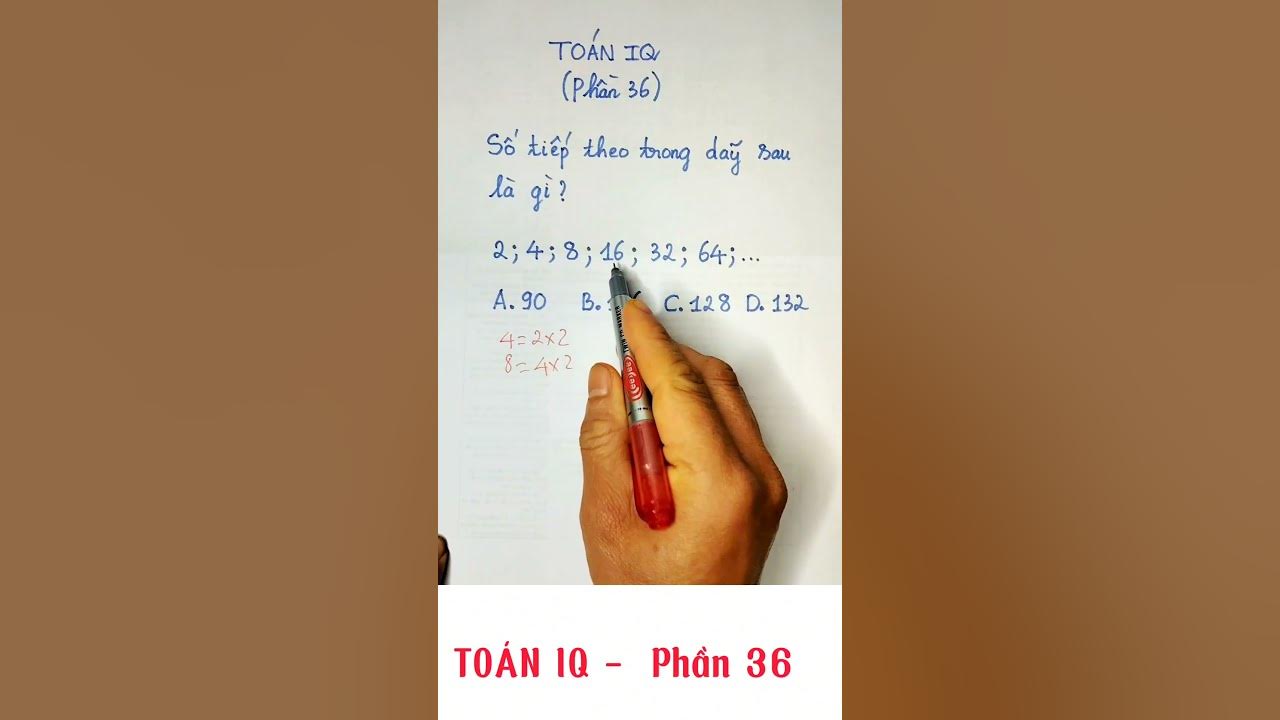 TOÁN IQ
(Phần 36)
Số tiếp theo trong dãy sau
là gì?
2; 4; 8; 16; 32; 64; ...
A. 90 B. C. 128 D. 132
4 = 2 x 2
8 = 4 x 2
TOÁN IQ - Phần 36